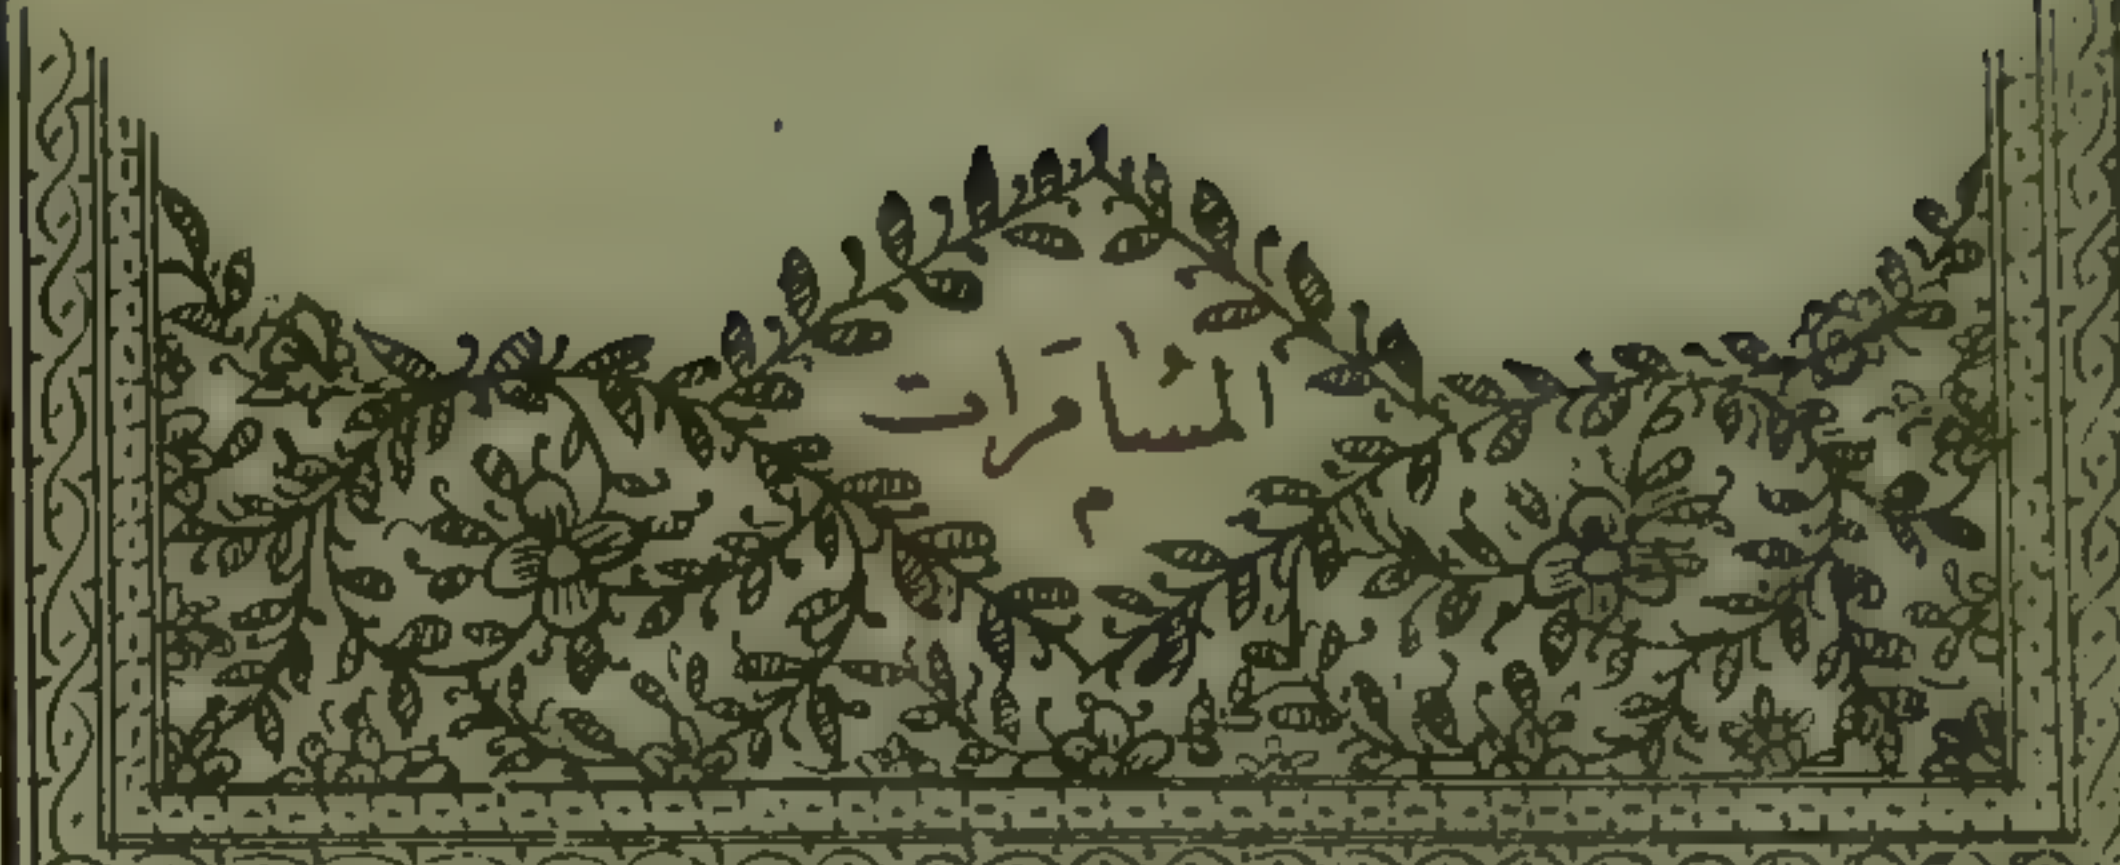 المسامرات
م